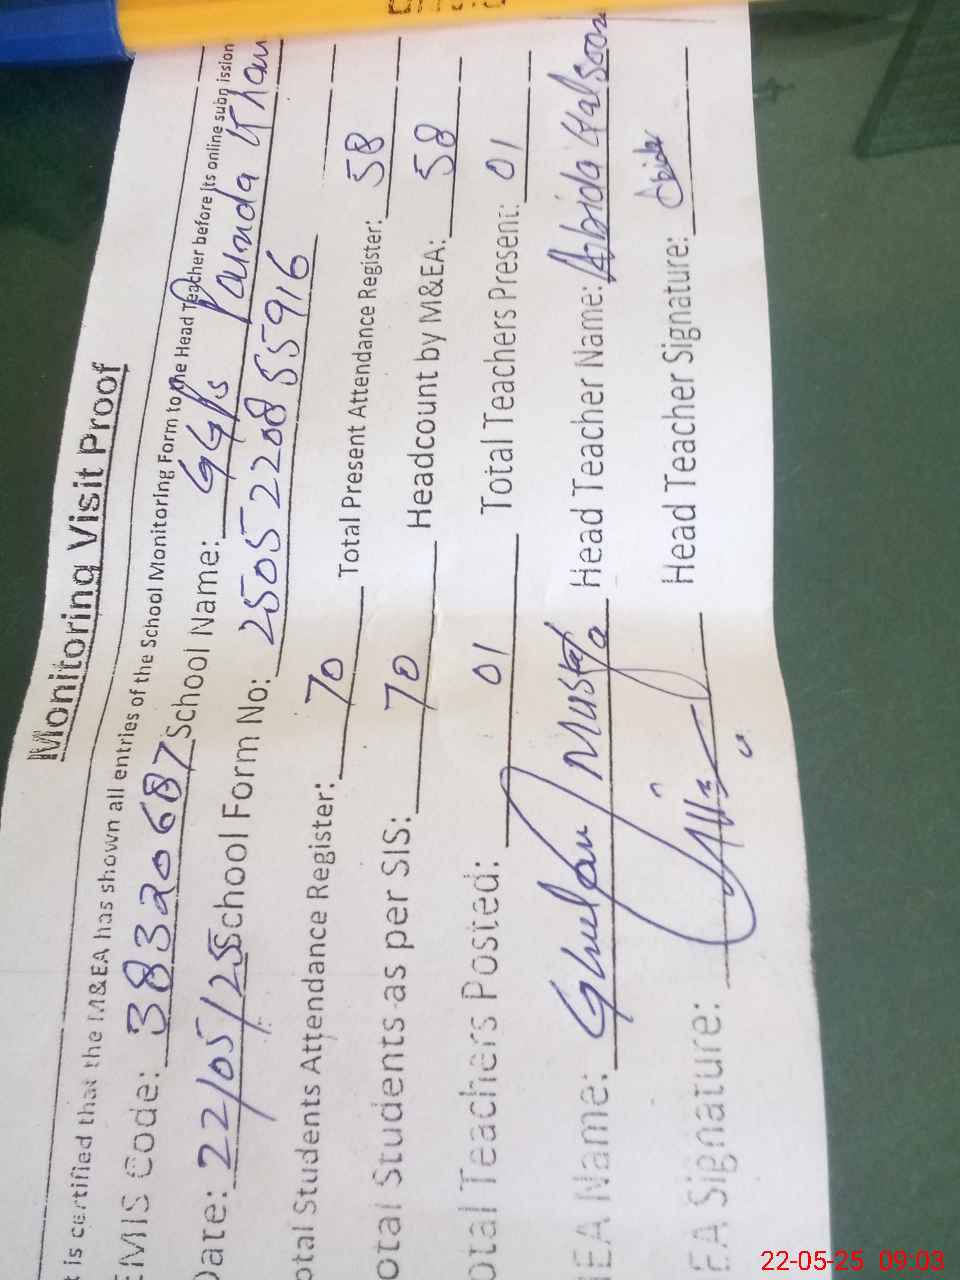 Monitoring Visit Proof
t is certified that the M&EA has shown all entries of the School Monitoring Form to the Head Teacher before its online submission
EMIS Code: 38320687 School Name: GGPS Painda Khan
Date: 22/05/25 School Form No: 2505220855916
otal Students Attendance Register: 70 Total Present Attendance Register: 58
otal Students as per SIS: 70 Headcount by M&EA: 58
otal Teachers Posted: 01 Total Teachers Present: 01
EA Name: Ghulam Mustafa Head Teacher Name: Abida Kalsoom
EA Signature: Head Teacher Signature: Abida
22-05-25 09:03